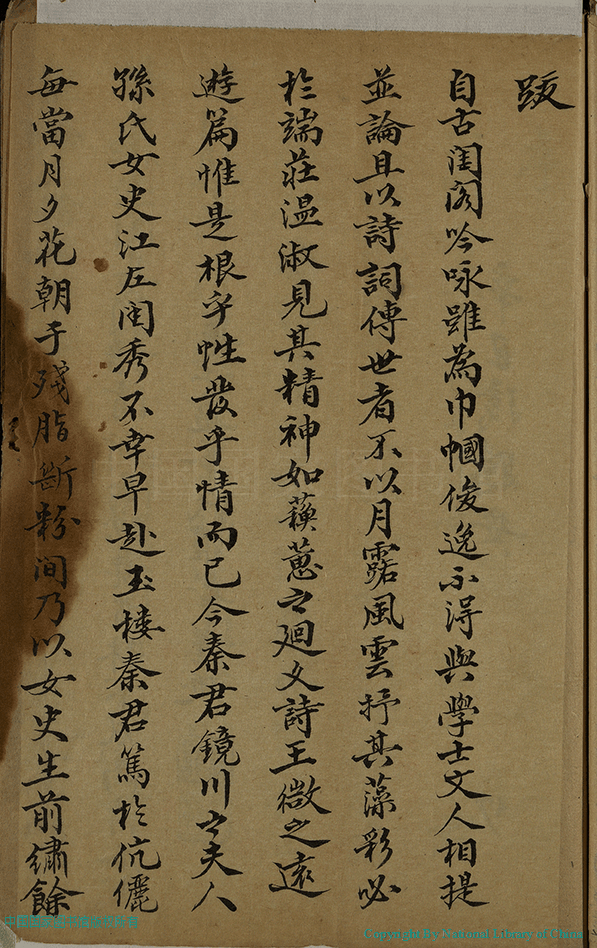 跋
自古閨閣吟咏雖為巾幗俊逸不得與學士文人相提
並論且以詩詞傳世者不以月露風雲抒其藻彩必
於端莊溫淑見其精神如蘋蕙之廻文詩王微之遠
遊篇惟是根乎性發乎情而已今秦君鏡川之夫人
孫氏女史江左閨秀不幸早赴玉樓秦君篤於伉儷
每當月夕花朝于殘脂斷粉間乃以女史生前繡餘
Copyright by National Library of China